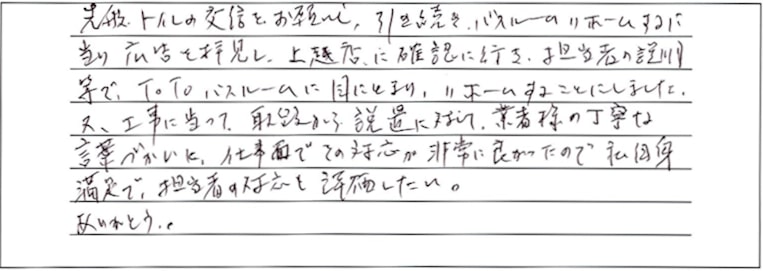 先般、トイレの交信をお願いし、引き続き、バスルームリホームするに
当り広告を拝見し、上越店に確認に行き、担当者の説明
等で、TOTOバスルームに目にとまり、リホームすることにしました。
又、工事に当って、取ら設置に対して、業者様の丁寧な
言葉づかいに、仕事面でその対応が非常に良かったので私自身
満足で、担当者の対応を評価したい。
ありがとう。